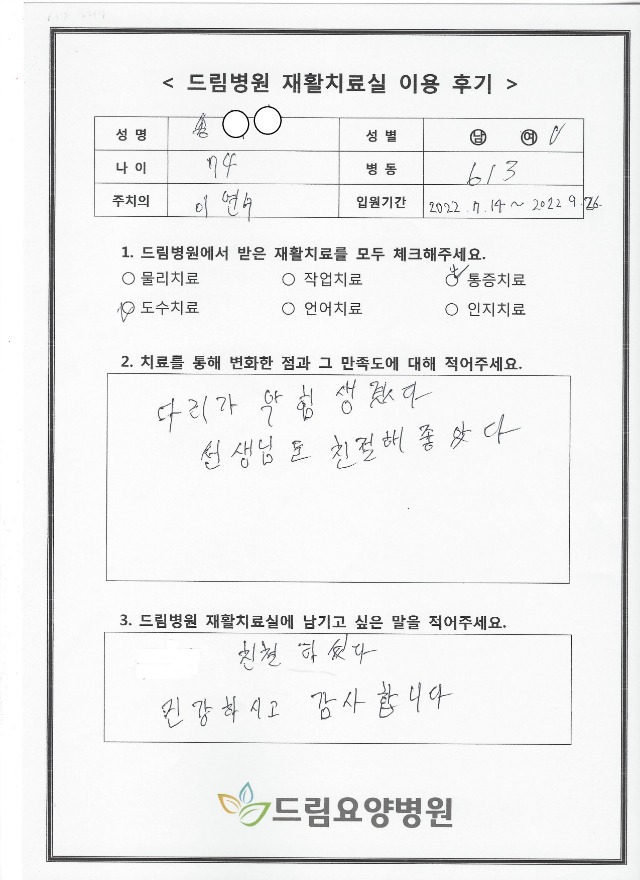 < 드림병원 재활치료실 이용 후기 >
성 명 성 별 ㊚ ㊛ ✓
나 이 74 병 동 613
주치의 이 연 입원기간 2022.7.14 ~ 2022 9.26.
1. 드림병원에서 받은 재활치료를 모두 체크해주세요.
○ 물리치료 ○ 작업치료 ○ 통증치료
○ 도수치료 ○ 언어치료 ○ 인지치료
2. 치료를 통해 변화한 점과 그 만족도에 대해 적어주세요.
다리가 약 힘 생겼다
선생님도 친절해 좋았다
3. 드림병원 재활치료실에 남기고 싶은 말을 적어주세요.
친철 하셨다
건강하시고 감사합니다
드림요양병원